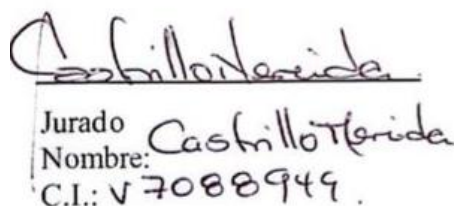 Castrillo Nereida
Jurado
Nombre: Castrillo Nereida
C.I.: V 7088949.